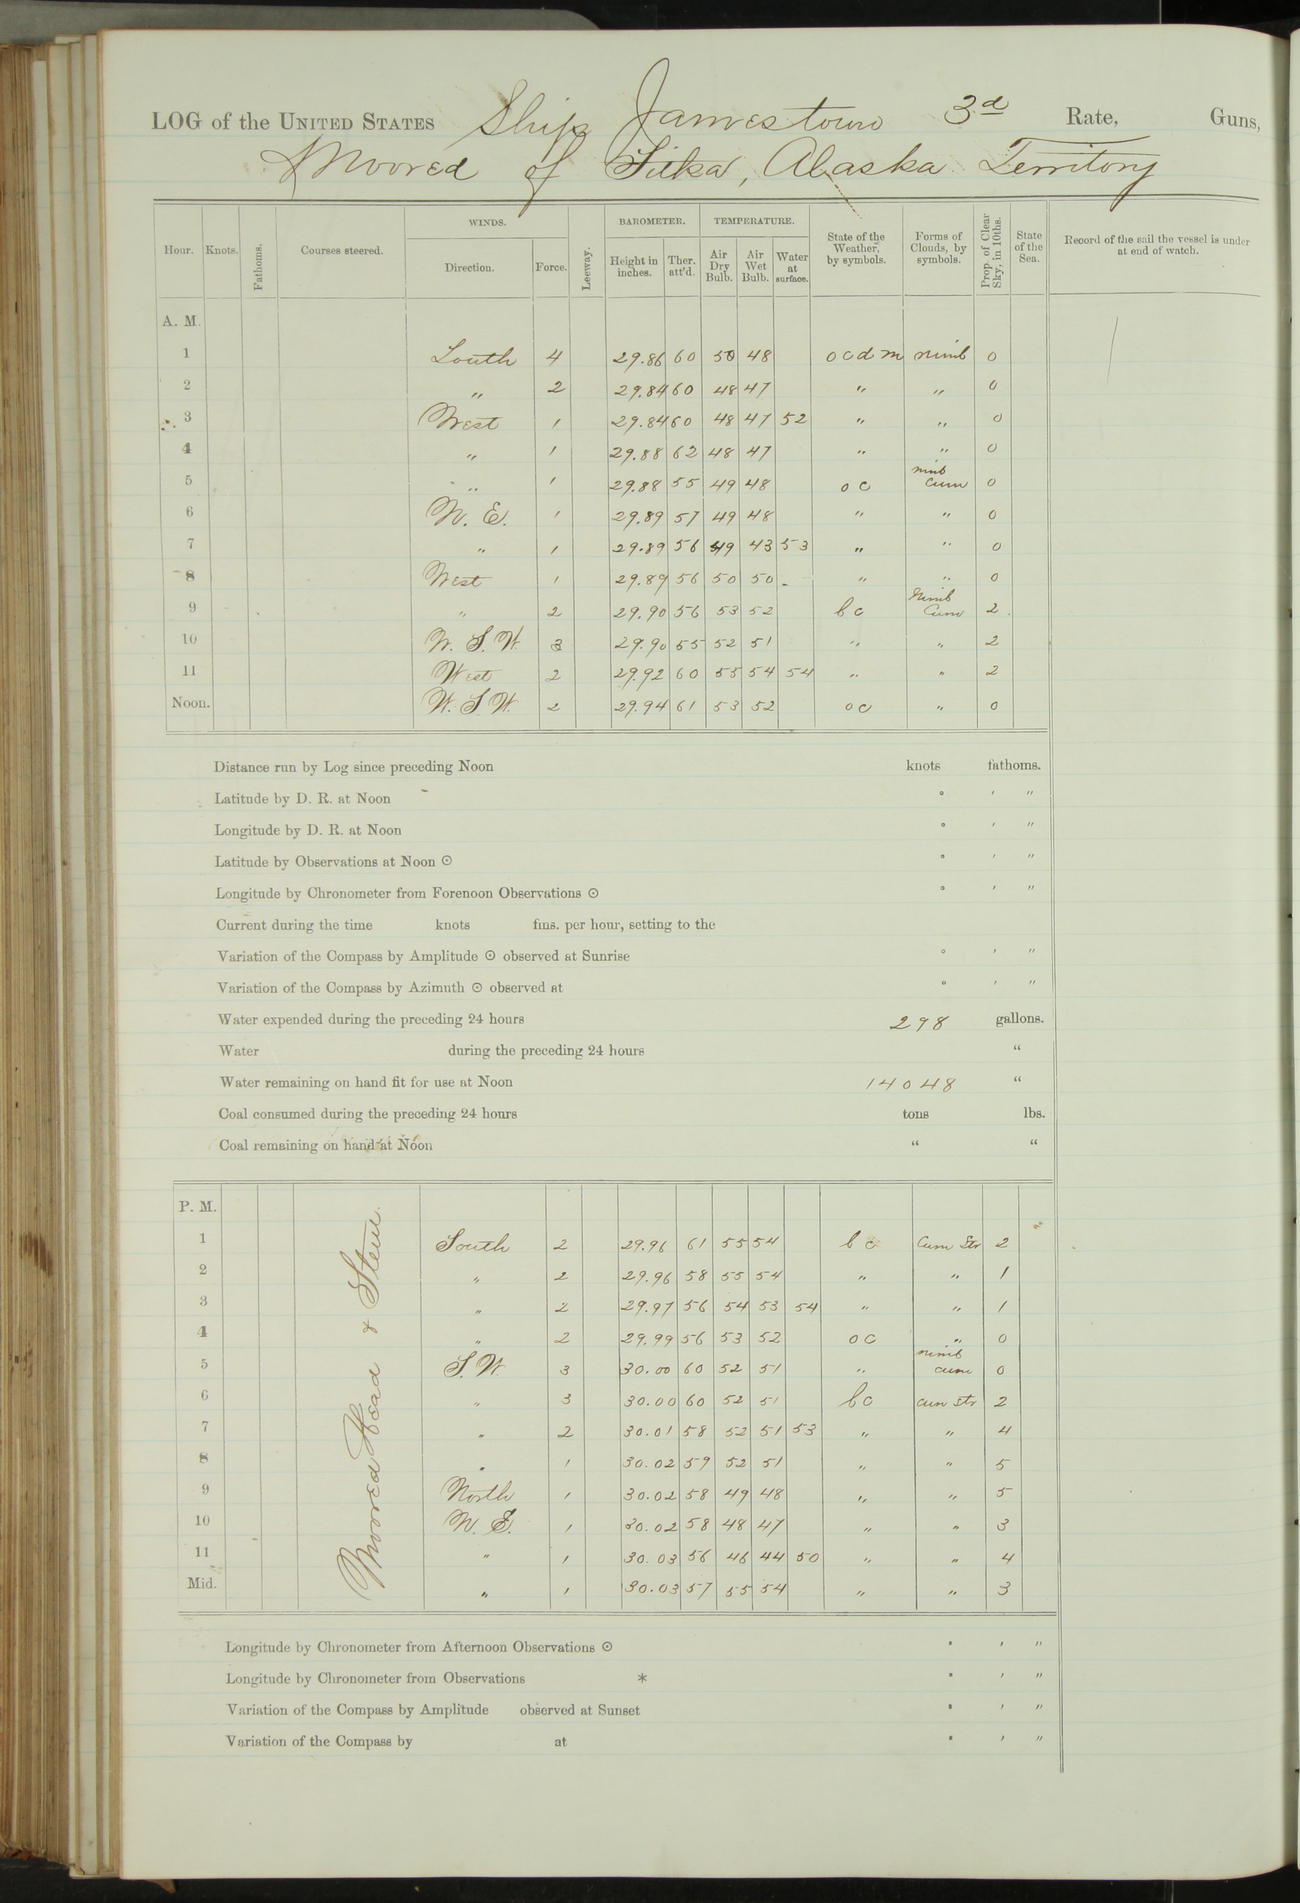 LOG of the UNITED STATES Ship Jamestown 3d Rate, Guns,
Moored of Sitka, Alaska Territory
Hour. Knots. Fathoms. Courses steered. WINDS. Direction. Force. Leeway. BAROMETER. Height in inches. Ther. att'd. TEMPERATURE. Air Dry Bulb. Air Wet Bulb. Water at surface. State of the Weather, by symbols. Forms of Clouds, by symbols. Prop. of Clear Sky, in 10ths. State of the Sea. Record of the sail the vessel is under at end of watch.
A. M.
1 South 4 29.86 60 50 48 o c d m nimb 0
2 " 2 29.84 60 48 47 " " 0
3 West 1 29.84 60 48 47 52 " " 0
4 " 1 29.88 62 48 47 " " 0
5 " 1 29.88 55 49 48 o c nimb cum 0
6 N. E. 1 29.89 57 49 48 " " 0
7 " 1 29.89 56 49 43 53 " " 0
8 West 1 29.89 56 50 50 " " 0
9 " 2 29.90 56 53 52 b c Nimb Cum 2
10 W. S. W. 3 29.90 55 52 51 " " 2
11 West 2 29.92 60 55 54 54 " " 2
Noon. W. S. W. 2 29.94 61 53 52 o c " 0
Distance run by Log since preceding Noon knots fathoms.
Latitude by D. R. at Noon ° ' "
Longitude by D. R. at Noon ° ' "
Latitude by Observations at Noon ⊙ ° ' "
Longitude by Chronometer from Forenoon Observations ⊙ ° ' "
Current during the time knots fms. per hour, setting to the
Variation of the Compass by Amplitude ⊙ observed at Sunrise ° ' "
Variation of the Compass by Azimuth ⊙ observed at ° ' "
Water expended during the preceding 24 hours 298 gallons.
Water during the preceding 24 hours "
Water remaining on hand fit for use at Noon 14048 "
Coal consumed during the preceding 24 hours tons lbs.
Coal remaining on hand at Noon " "
P. M.
Moored Head & Stern.
1 South 2 29.96 61 55 54 b c Cum Str 2
2 " 2 29.96 58 55 54 " " 1
3 " 2 29.97 56 54 53 54 " " 1
4 " 2 29.99 56 53 52 o c " 0
5 S. W. 3 30.00 60 52 51 " nimb cum 0
6 " 3 30.00 60 52 51 b c cum str 2
7 " 2 30.01 58 52 51 53 " " 4
8 " 1 30.02 59 52 51 " " 5
9 North 1 30.02 58 49 48 " " 5
10 N. E. 1 30.02 58 48 47 " " 3
11 " 1 30.03 56 46 44 50 " " 4
Mid. " 1 30.03 57 55 54 " " 3
Longitude by Chronometer from Afternoon Observations ⊙ ° ' "
Longitude by Chronometer from Observations * ° ' "
Variation of the Compass by Amplitude observed at Sunset ° ' "
Variation of the Compass by at ° ' "